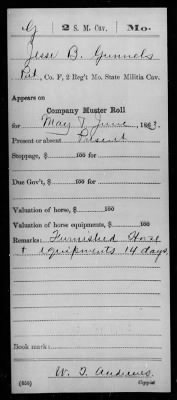 G | 2 S. M. Cav. | Mo.
Jesse B. Gunnels
Pvt, Co. F, 2 Reg't Mo. State Militia Cav.
Appears on
Company Muster Roll
for May & June, 1863.
Present or absent Present
Stoppage, $ 100 for
Due Gov't, $ 100 for
Valuation of horse, $ 100
Valuation of horse equipments, $ 100
Remarks: Furnished Horse
& equipments 14 days
Book mark:
W. T. Andrews
(858) Copyist.